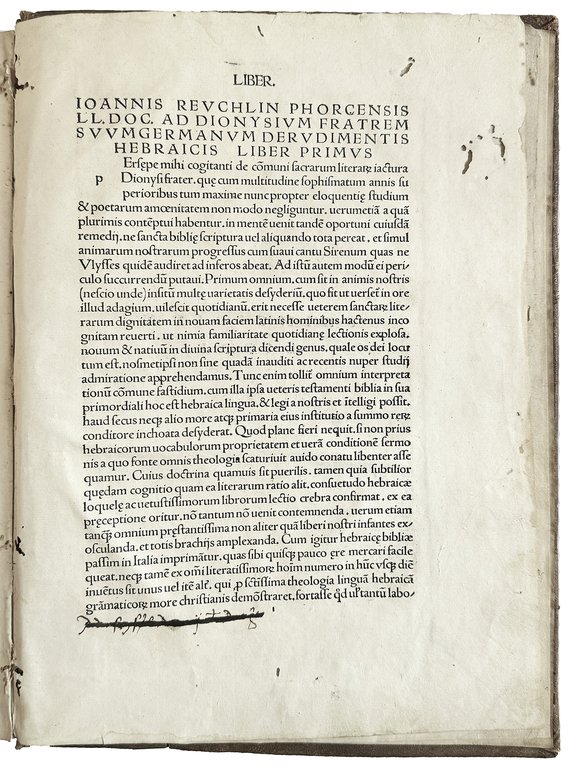 LIBER.
IOANNIS REVCHLIN PHORCENSIS
LL. DOC. AD DIONYSIVM FRATREM
SVVMGERMANVM DERVDIMENTIS
HEBRAICIS LIBER PRIMVS
Ersępe mihi cogitanti de cōmuni sacrarum literaꝝ iactura
p Dionysi frater. quę cum multitudine sophismatum annis su
perioribus tum maxime nunc propter eloquentię studium
& poetarum amœnitatem non modo negliguntur. uerumetiā a quā
plurimis contēptui habentur. in mentē uenit tandē oportuni cuiusdā
remedij. ne sancta biblię scriptura uel aliquando tota pereat. et simul
animarum nostrarum progressus cum suaui cantu Sirenum quas ne
Vlysses quidē audiret ad inferos abeat. Ad istū autem modū ei peri/
culo succurrendū putaui. Primum omnium, cum sit in animis nostris
(nescio unde) insitū multę uarietatis desyderiū. quo fit ut uerset̄ in ore
illud adagium. uilescit quotidianū. erit necesse ueterem sanctaꝝ lite/
rarum dignitatem in nouam faciem latinis hominibus hactenus inco
gnitam reuerti. ut nimia familiaritate quotidianę lectionis explosa.
nouum & natiuū in diuina scriptura dicendi genus. quale os dei locu
tum est. nosmetipsi non sine quadā inauditi ac recentis nuper studij
admiratione apprehendamus. Tunc enim tollit̄ omnium interpreta
tionū cōmune fastidium. cum illa ipsa ueteris testamenti biblia in sua
primordiali hoc est hebraica lingua. & legi a nostris et ītelligi possit.
haud secus necꝫ alio more atcꝫ primaria eius institutio a summo reꝝ
conditore inchoata desyderat. Quod plane fieri nequit. si non prius
hebraicorum uocabulorum proprietatem et uerā conditionē sermo
nis a quo fonte omnis theologia scaturiuit auido conatu libenter asse
quamur. Cuius doctrina quamuis sit puerilis. tamen quia subtilior
quędam cognitio quam ea literarum ratio alit. consuetudo hebraicæ
loquelę ac uetustissimorum librorum lectio crebra confirmat. ex ea
pręceptione oritur. nō tantum nō uenit contemnenda. uerum etiam
tancꝫ omnium pręstantissima non aliter quā liberi nostri infantes ex/
osculanda. et totis brachijs amplexanda. Cum igitur hebraicę bibliæ
passim in Italia imprimātur. quas sibi quiscꝫ pauco ęre mercari facile
queat. necꝫ tamē ex om̄i literatissimoꝝ hoīm numero in hūc uscꝫ diē
inuētus sit unus uel itē alt̄. qui ꝓ sctissima theologia linguā hebraicā
grāmaticoꝝ more christianis demōstraret. fortasse ꝙd ulᷓ tantū labo/